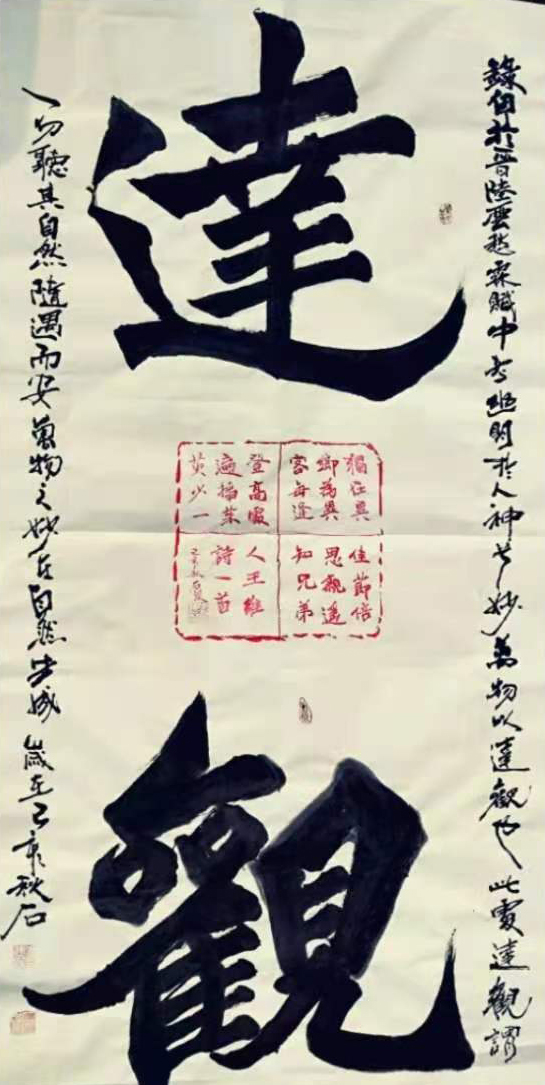 達觀
錄自於晉陸雲愁霖賦中考幽明於人神兮妙萬物以達觀也此處達觀謂
一切聽其自然隨遇而安萬物之妙在自然生成 歲在己亥秋石
獨在異
鄉為異
客每逢
佳節倍
思親遙
知兄弟
登高處
遍插茱
萸少一
人王維
詩一首